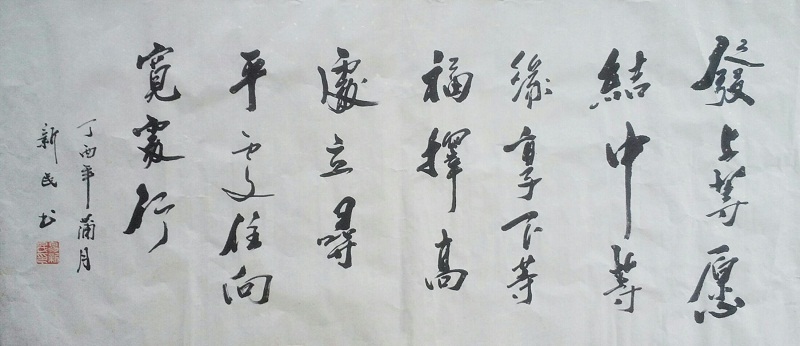 發上等愿
結中等
緣享下等
福擇高
處立尋
平處住向
寬處行
丁酉年蒲月
新民书